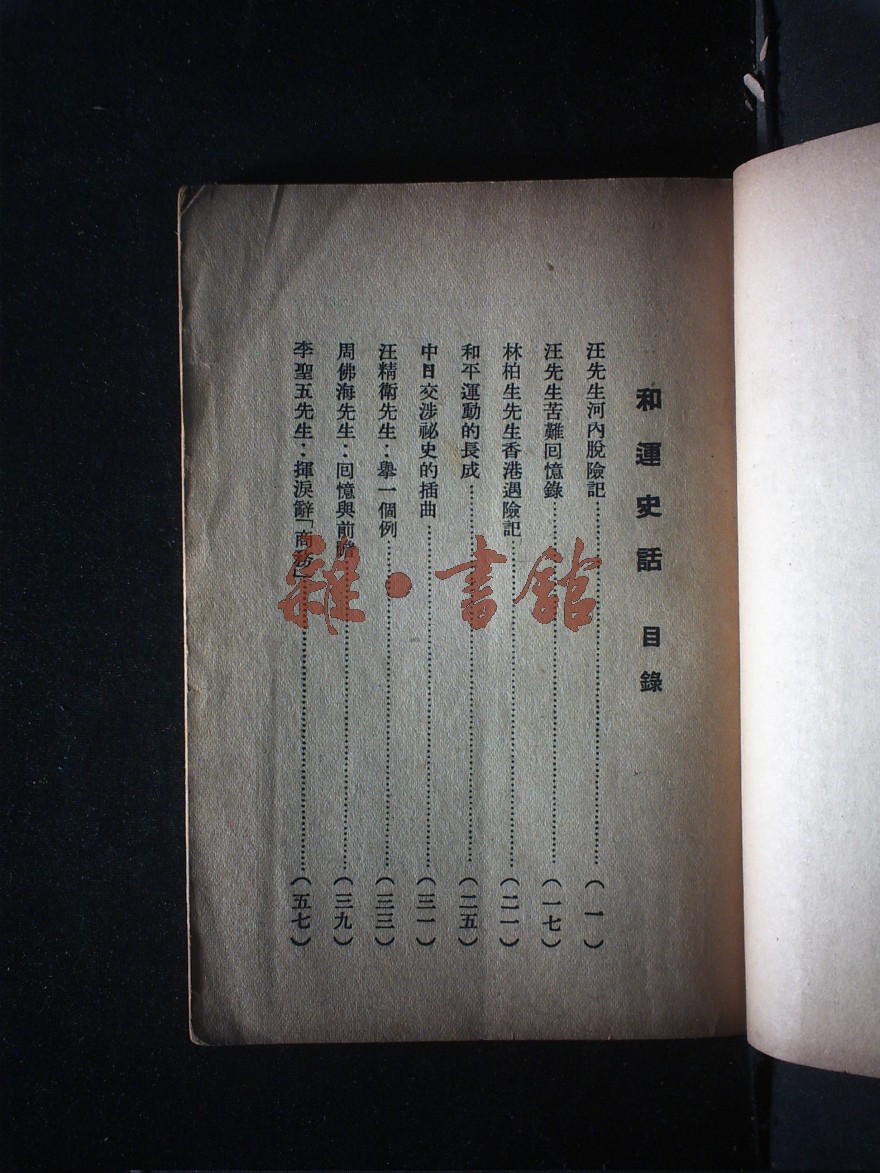 和運史話 目錄
汪先生河內脫險記……(一)
汪先生苦難回憶錄……(一七)
林柏生先生香港遇險記……(二一)
和平運動的長成……(二五)
中日交涉祕史的插曲……(三一)
汪精衛先生：舉一個例……(三三)
周佛海先生：回憶與前瞻……(三九)
李聖五先生：揮淚辭「商務」……(五七)
雜·書館